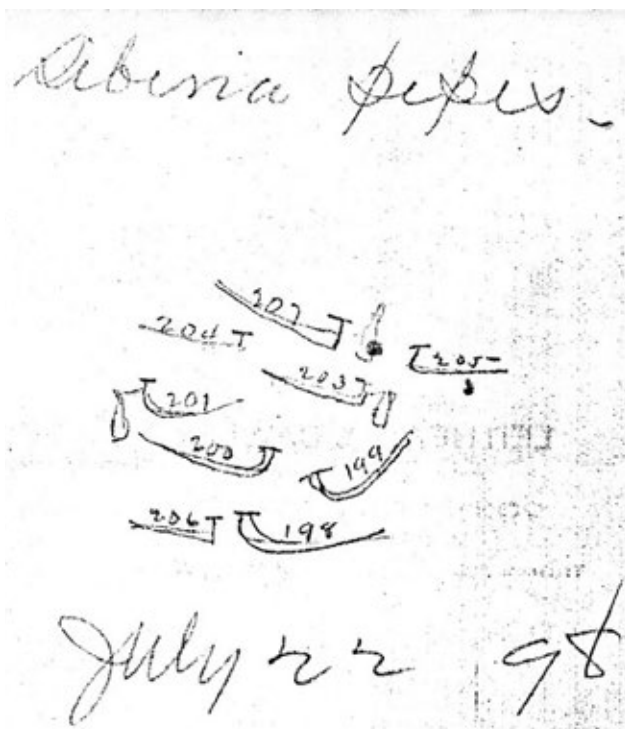 Siberia pipes.
202
204
205
203
201
200
199
206
198
July 22 98